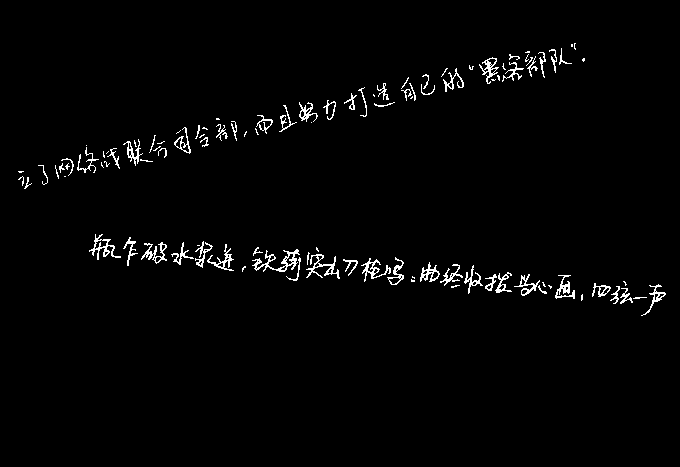 立了网络战联合司令部，而且努力打造自己的“黑客部队”．
瓶乍破水浆迸，铁骑突出刀枪鸣：曲终收拨当心画，四弦一声